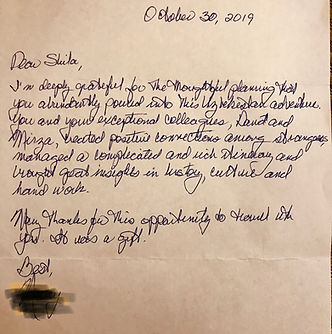 October 30, 2019
Dear Shila,
I'm deeply grateful for the thoughtful planning that
you abundantly poured into this Uzbekistan adventure.
You and your exceptional colleagues, and
Mirza, created positive connections among strangers
managed a complicated and rich itinerary and
brought great insights in history, culture and
hand work.
Many thanks for this opportunity to travel with
you. It was a gift.
Best,